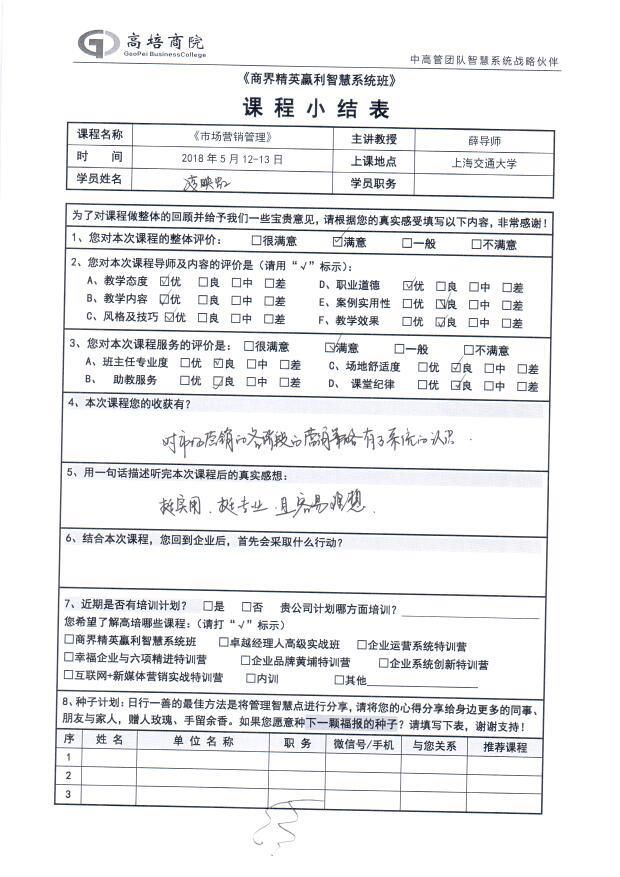 高培商院
GaoPei BusinessCollege
中高管团队智慧系统战略伙伴
《商界精英赢利智慧系统班》
课程小结表
课程名称 《市场营销管理》 主讲教授 薛导师
时 间 2018 年 5 月 12-13 日 上课地点 上海交通大学
学员姓名 学员职务
为了对课程做整体的回顾并给予我们一些宝贵意见，请根据您的真实感受填写以下内容，非常感谢！
1、您对本次课程的整体评价： □很满意 ☑满意 □一般 □不满意
2、您对本次课程导师及内容的评价是（请用“√”标示）：
A、教学态度 ☑优 □良 □中 □差 D、职业道德 ☑优 □良 □中 □差
B、教学内容 ☑优 □良 □中 □差 E、案例实用性 □优 ☑良 □中 □差
C、风格及技巧 ☑优 □良 □中 □差 F、教学效果 □优 ☑良 □中 □差
3、您对本次课程服务的评价是： □很满意 ☑满意 □一般 □不满意
A、班主任专业度 □优 ☑良 □中 □差 C、场地舒适度 □优 ☑良 □中 □差
B、 助教服务 □优 ☑良 □中 □差 D、 课堂纪律 □优 ☑良 □中 □差
4、本次课程您的收获有？
对市场营销的各阶段的营销策略有了系统的认识.
5、用一句话描述听完本次课程后的真实感想：
挺实用、挺专业、且容易理想.
6、结合本次课程，您回到企业后，首先会采取什么行动？
7、近期是否有培训计划？ □是 □否 贵公司计划哪方面培训？
您希望了解高培哪些课程：（请打“√”标示）
□商界精英赢利智慧系统班 □卓越经理人高级实战班 □企业运营系统特训营
□幸福企业与六项精进特训营 □企业品牌黄埔特训营 □企业系统创新特训营
□互联网+新媒体营销实战特训营 □内训 □其他
8、种子计划：日行一善的最佳方法是将管理智慧点进行分享，请将您的心得分享给身边更多的同事、
朋友与家人，赠人玫瑰、手留余香。如果您愿意种下一颗福报的种子？请填写下表，谢谢支持！
序 姓 名 单 位 名 称 职 务 微信号/手机 与您关系 推荐课程
1
2
3